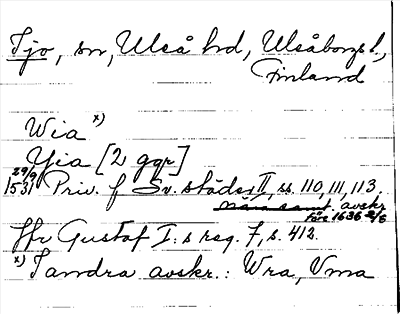 Ijo, sn, Ulså hd, Ulsåborgs l.,
Finland
Wia x)
Yia [2 ggr]
29/9 1531 Priv. f Sv. städer II, ss. 110, 111, 113.
nära samt. avskr.
före 1636 2/6
Hr Gustaf I:s reg. 7, s. 412.
x) I andra avskr.: Wra, Vma